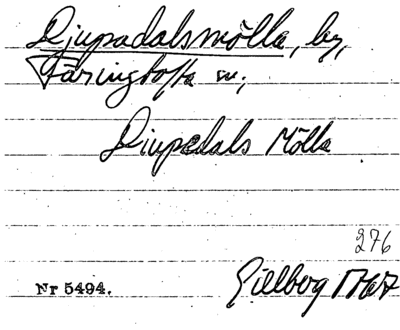 Djupadalsmölla, by,
Färingtofta sn.,
Diupedals Mölla
276
Gillberg 1767
Nr 5494.